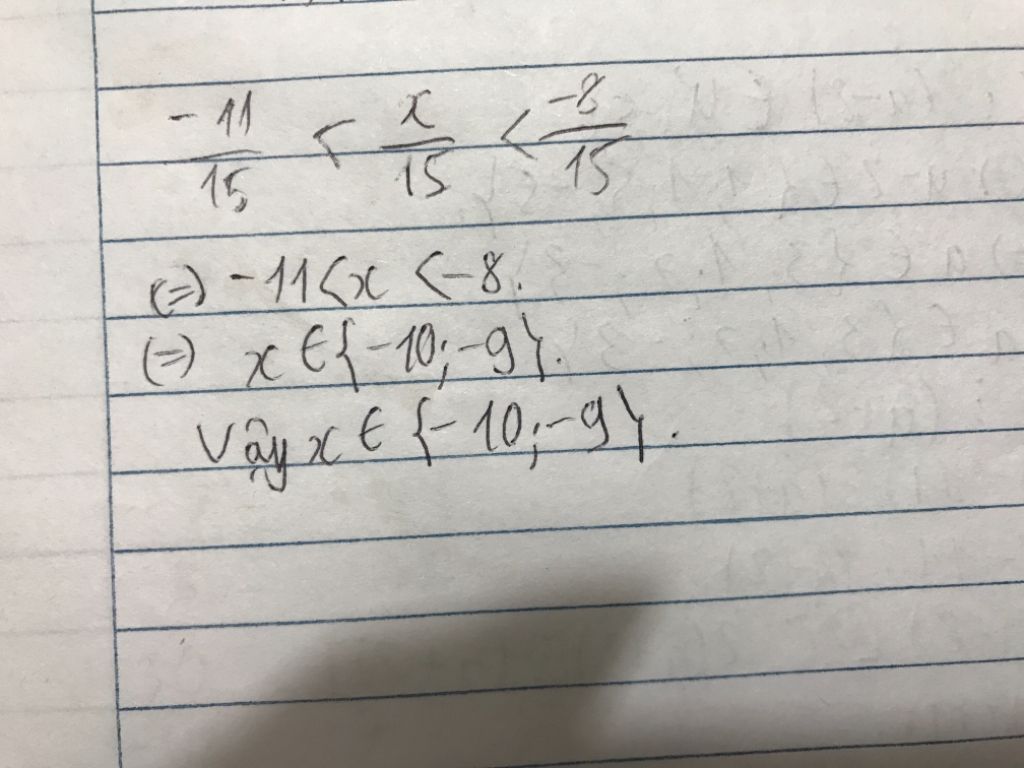 -11/15 < x/15 < -8/15
(=) -11 < x < -8.
(=) x ∈ {-10; -9}.
Vậy x ∈ {-10; -9}.